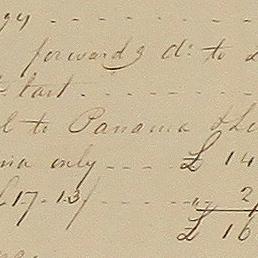 forward g do: to
tart
to Panama & Li
ma only £ 14
17-13/ " 2
£ 16